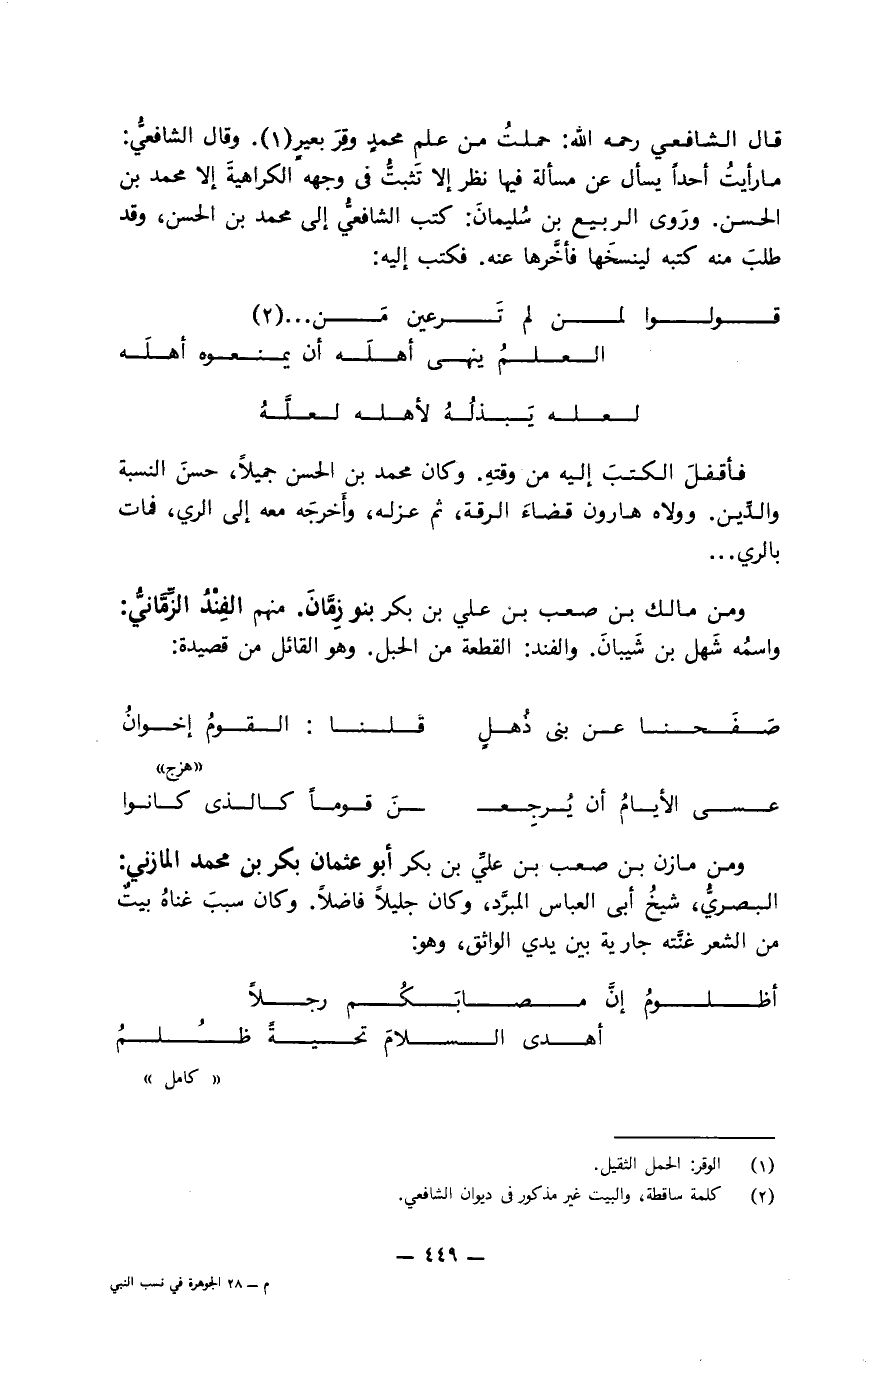 قال الشافعي رحمه الله: حملتُ من علم محمدٍ وِقرَ بعيرٍ(١). وقال الشافعيُّ:
مارأيتُ أحداً يسأل عن مسألة فيها نظر إلا تَثبتُّ فى وجهه الكراهيةَ إلا محمد بن
الحسن. وروَى الربيع بن سُليمانَ: كتب الشافعيُّ إلى محمد بن الحسن، وقد
طلبَ منه كتبه لينسخَها فأخَّرها عنه. فكتب إليه:
قـولـوا لمـن لم تَـرعين مَـن...(٢)
العـلـمُ ينهـى أهـلَـه أن يمـنـعـوه أهـلَـه
لـعـلـه يَـبـذلُـهُ لأهـلـه لـعـلَّـهُ
فأقفلَ الكتبَ إليه من وقتهِ. وكان محمد بن الحسن جميلاً، حسنَ النسبة
والدِّين. وولاه هارون قضاءَ الرقة، ثم عزله، وأخرجَه معه إلى الري، فمات
بالري...
ومن مالك بن صعب بن علي بن بكر بنو زِمَّانَ. منهم الفِنْدُ الزِّمَّانيُّ:
واسمُه شَهل بن شَيبانَ. والفند: القطعة من الجبل. وهو القائل من قصيدة:
صَـفَـحـنـا عـن بنى ذُهـلٍ قـلـنـا : الـقـومُ إخـوانُ
«هزج»
عـسـى الأيـامُ أن يُـرجِعـ ـنَ قـومـاً كـالـذى كـانـوا
ومن مازن بن صعب بن عليِّ بن بكر أبو عثمان بكر بن محمد المازني:
البصريُّ، شيخُ أبى العباس المبرَّد، وكان جليلاً فاضلاً. وكان سببَ غناهُ بيتٌ
من الشعر غنَّته جارية بين يدي الواثق، وهو:
أظـلـومُ إنَّ مـصـابَـكُـم رجـلاً
أهـدى الـسـلامَ تحـيـةً ظُـلـمُ
« كامل »
(١) الوقر: الحمل الثقيل.
(٢) كلمة ساقطة، والبيت غير مذكور فى ديوان الشافعي.
— ٤٤٩ —
م — ٢٨ الجوهرة في نسب النبي